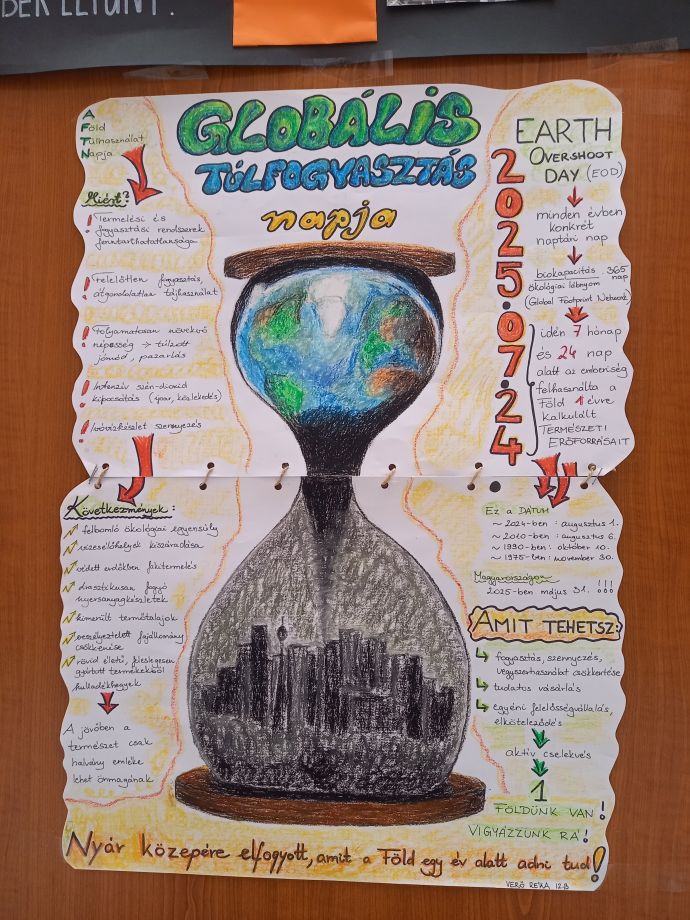 BER ELTŰNT.
A
Föld
Túlhasználat
Napja
GLOBÁLIS
TÚLFOGYASZTÁS
napja
Miért?
! Termelési és
fogyasztási rendszerek
fenntarthatatlansága
! Felelőtlen fogyasztás,
átgondolatlan tájhasználat
! Folyamatosan növekvő
népesség → túlzott
jómód, pazarlás
! Intenzív szén-dioxid
kibocsátás (ipar, közlekedés)
! Ivóvízkészlet szennyezés
Következmények:
felbomló ökológiai egyensúly
vizesélőhelyek kiszáradása
védett erdőkben fakitermelés
drasztikusan fogyó
nyersanyagkészletek
kimerült termőtalajok
veszélyeztetett fajállomány
csökkenése
rövid életű, feleslegesen
gyártott termékekből
hulladékhegyek
A jövőben a
természet csak
halvány emléke
lehet önmagának
EARTH
OVERSHOOT
DAY (EOD)
2025.07.24
minden évben
konkrét
naptári nap
biokapacitás . 365
ökológiai lábnyom nap
(Global Footprint Network)
idén 7 hónap
és 24 nap
alatt az emberiség
felhasználta a
Föld 1 évre
kalkulált
TERMÉSZETI
ERŐFORRÁSAIT
Ez a DÁTUM
~ 2024-ben : augusztus 1.
~ 2010-ben : augusztus 6.
~ 1990-ben : október 10.
~ 1975-ben : november 30.
Magyarországon
2025-ben május 31. !!!
AMIT TEHETSZ:
fogyasztás, szennyezés,
vegyszerhasználat csökkentése
tudatos vásárlás
egyéni felelősségvállalás,
elköteleződés
aktív cselekvés
1
FÖLDÜNK VAN!
VIGYÁZZUNK RÁ!
Nyár közepére elfogyott, amit a Föld egy év alatt adni tud!
VERŐ RÉKA 12.B